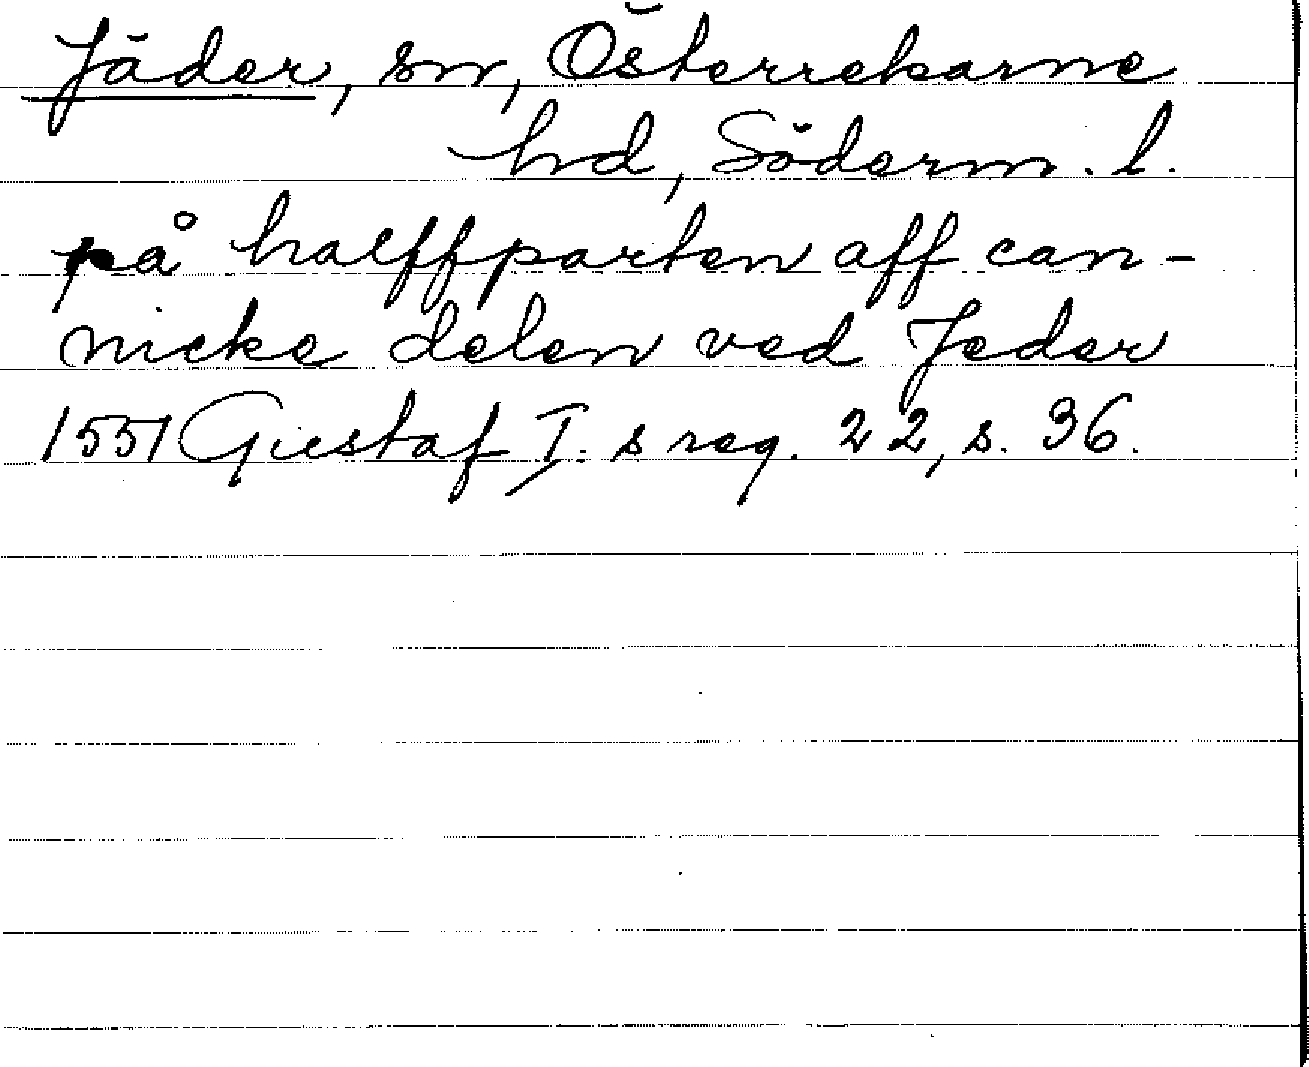 Jäder, sn, Österrekarne
hd, Söderm. l.
på halffparten aff can-
nicke delen ved Jeder
1551 Gustaf I.s reg. 22, s. 36.